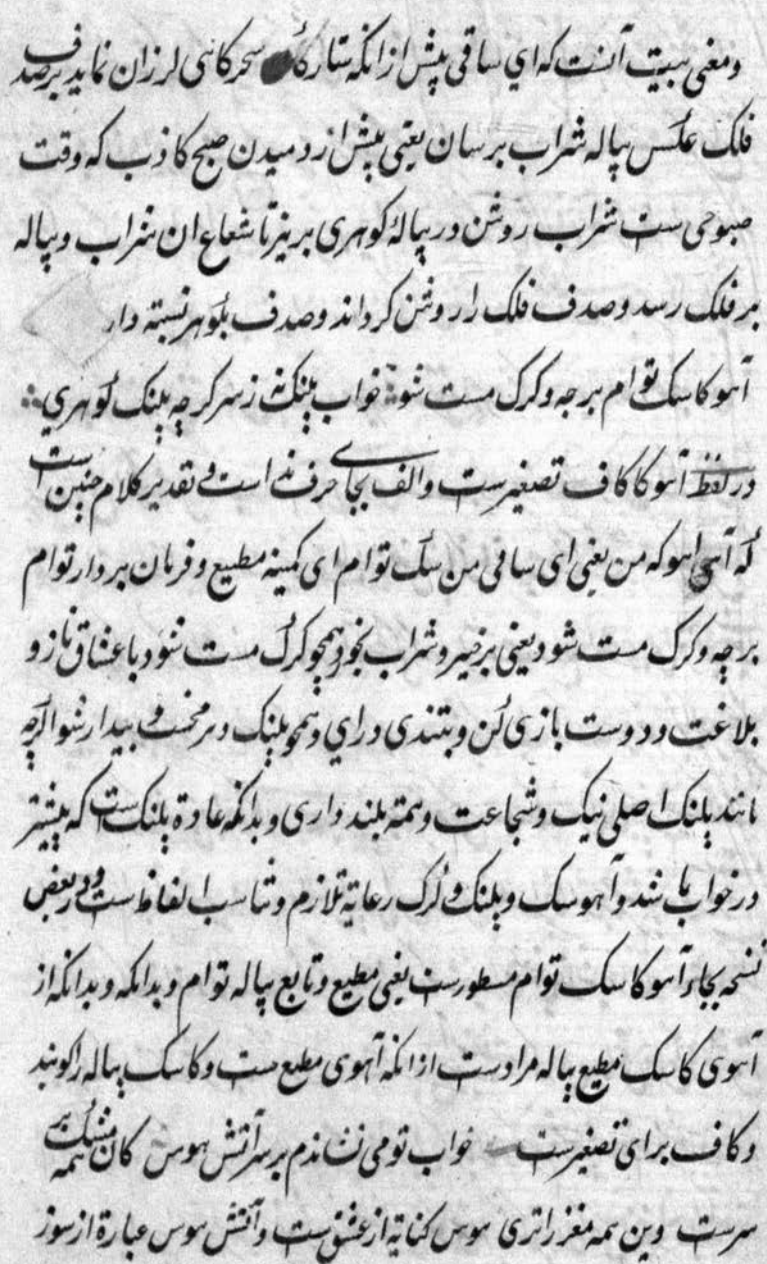 ومعنی بیت آنست که ای ساقی پیش از انکه ستارگا سحرکاهی لرزان نماید برصدف
فلک عکس پیاله شراب برسان یعنی پیش از دمیدن صبح کاذب که وقت
صبوحی ست شراب روشن در پیالهٔ کوهری بریز تا شعاع ان شراب و پیاله
بر فلک رسد و صدف فلک را روشن کرداند و صدف بگوهر نسبته دار
آهو کا سک توام برجه و کرک مست شو خواب پلنک نه ز سر کرچه پلنک کوهری
در لفظ آهوکا کاف تصغیرست والف بجای حرف ندا است و تقدیر کلام چنین است
که آی اهوکه من یعنی ای ساقی من سک توام ای کمینه مطیع و فرمان بردار توام
برجه و کرک مست شو یعنی برخیز و شراب بخور و همچو کرک مست شو و با عشاق ناز و
بلاغت و دوست بازی کن و بتندی درای و همچو پلنک و مرخت و بیدار شو اگرچه
مانند پلنک اصلی نیک و شجاعت و همته بلند داری و بدانکه عادة پلنک ست که بیشتر
در خواب باشد و آهو سک و پلنک و کرک رعایة تلازم و تناسب الفاظ ست و در بعض
نسخه بجاء آهو کاسک توام مسطورست یعنی مطیع و تابع پیاله توام و بدانکه و بدانکه از
آهوی کاسک مطیع پیاله مرادست از انکه آهوی مطیع ست و کاسک پیاله را کویند
و کاف برای تصغیرست خواب تو می نشاندم بر سر آتش هوس کان همه مشک بر
سرست وین همه مغز را تری هوس کنایة از عشق ست و آتش هوس عبارة از سوز